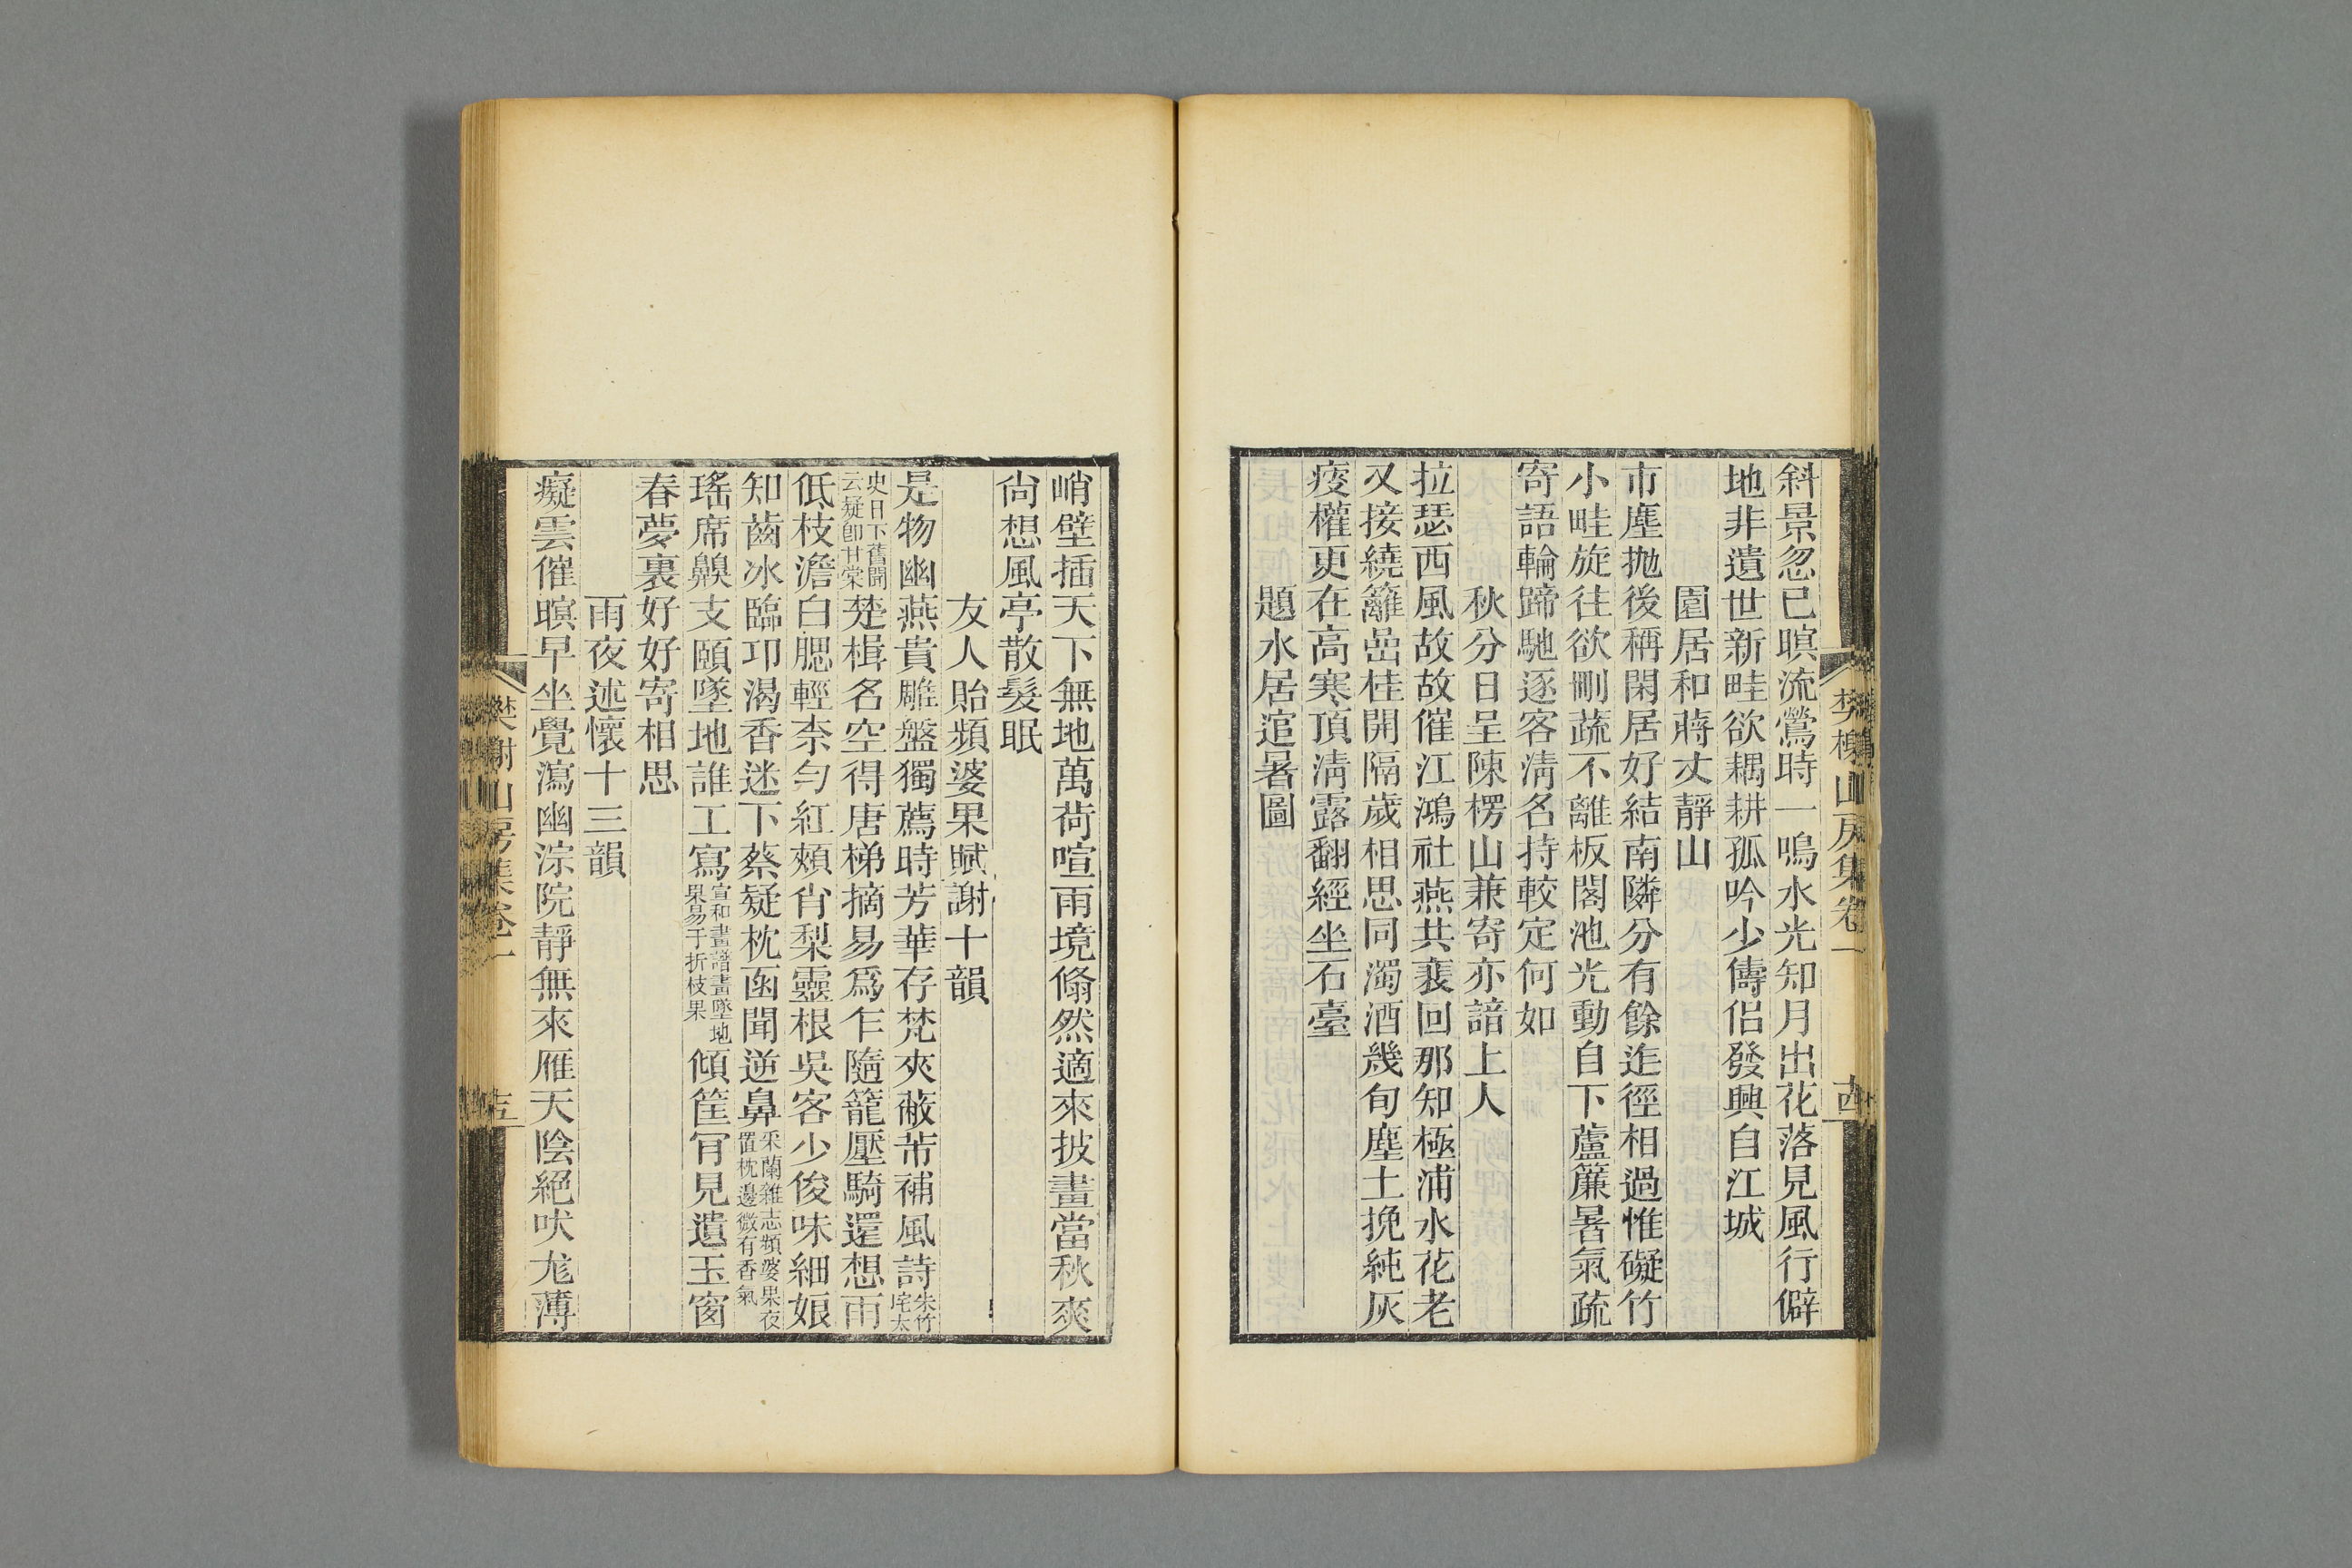 樊榭山房集卷一
古
斜景忽已暝流鶯時一鳴水光知月出花落見風行僻
地非遺世新畦欲耦耕孤吟少儔侶發興自江城
園居和蔣丈靜山
市塵拋後稱閑居好結南隣分有餘迮徑相過惟礙竹
小畦旋往欲刪蔬不離板閣池光動自下蘆簾暑氣疏
寄語輪蹄馳逐客淸名持較定何如
秋分日呈陳楞山兼寄亦諳上人
拉瑟西風故故催江鴻社燕共裵回那知極浦水花老
又接繞籬嵒桂開隔歲相思同濁酒幾旬塵土挽純灰
痎㿙更在高寒頂淸露翻經坐石臺
題水居逭暑圖
峭壁插天下無地萬荷喧雨境翛然適來披畫當秋爽
尙想風亭散髮眠
友人貽頻婆果賦謝十韻
是物幽燕貴雕盤獨薦時芳華存梵夾蔽芾補風詩朱竹垞太
史日下舊聞云疑卽甘棠楚楫名空得唐梯摘易爲乍隨籠壓騎還想雨
低枝澹白腮輕柰勻紅頰肖梨靈根吳客少俊味細娘
知齒冰臨卭渴香迷下蔡疑枕函聞逆鼻采蘭雜志頻婆果夜置枕邊微有香氣
瑤席齅支頤墜地誰工寫宣和畫譜畫墜地果易于折枝果傾筐肎見遺玉窗
春夢裏好好寄相思
雨夜述懷十三韻
癡雲催暝早坐覺瀉幽淙院靜無來雁天陰絕吠尨薄
樊榭山房集卷一